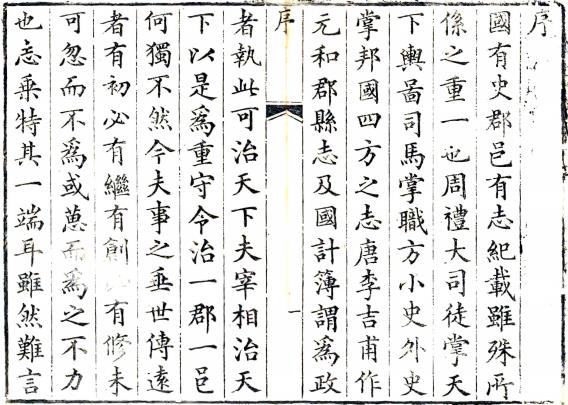 序
國有史郡邑有志紀載雖殊所
係之重一也周禮大司徒掌天
下輿啚司馬掌職方小史外史
掌邦國四方之志唐李吉甫作
元和郡縣志及國計簿謂為政
序
一
者執此可治天下夫宰相治天
下以是為重守令治一郡一邑
何獨不然今夫事之垂世傳遠
者有初必有繼有創必有修未
可忽而不為或葸而為之不力
也志乘特其一端耳雖然難言